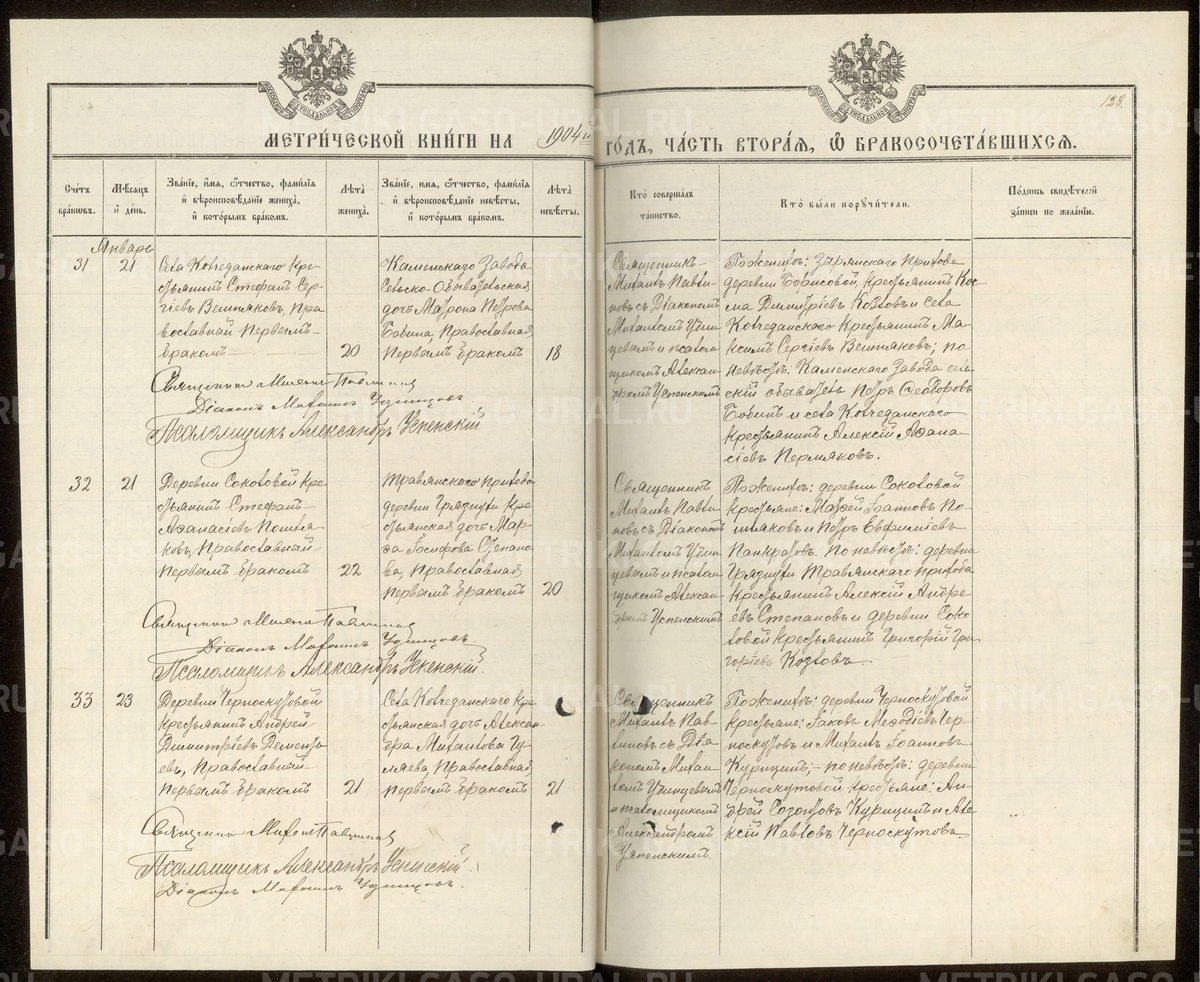 123.
МЕТРИЧЕСКОЙ КНИГИ НА 1904й ГОДЪ, ЧАСТЬ ВТОРАЯ, Ѡ БРАКОСОЧЕТАВШИХСЯ.
Счетъ браковъ.
Мѣсяцъ и день.
Званіе, имя, отчество, фамилія
и вѣроисповѣданіе жениха,
и которымъ бракомъ.
Лѣта жениха.
Званіе, имя, отчество, фамилія
и вѣроисповѣданіе невѣсты,
и которымъ бракомъ.
Лѣта невѣсты.
Кто совершалъ
таинство.
Кто были поручители.
Подпись свидѣтелей
записи по желанію.
Январь
31
21
Села Колчеданскаго кре-
стьянинъ Стефанъ Сер-
гіевъ Вешняковъ, пра
вославный первымъ
бракомъ
20
Каменскаго Завода
сельско-обывательская
дочь Матрона Петрова
Бабина, Православная
первымъ бракомъ
18
Священникъ
Михаилъ
новъ съ Діакономъ
Михаиломъ
цевымъ и псалом
щикомъ Алексан-
дромъ Успенскимъ
По женихѣ: Зырянскаго прихода
деревни Борисовой, крестьянинъ Кос-
ма Димитріевъ Козловъ и села
Колчеданскаго крестьянинъ Ма-
ксимъ Сергіевъ Вешняковъ; по
невѣстѣ: Каменскаго Завода сель-
скій обыватель Петръ Ѳеодоровъ
и села Колчеданскаго
крестьянинъ Алексій Аѳана-
сіевъ Пермяковъ.
Священникъ
Діаконъ Михаилъ
Псаломщикъ Александръ Успенскій
32
21
Деревни Соколовой кре
стьянинъ Стефанъ
Аѳанасіевъ Пошля-
ковъ, Православный
первымъ бракомъ
22
Травянскаго прихода
деревни Грязнухи кре
стьянская дочь Мар-
ѳа Іосифова Степано-
ва, Православная
первымъ бракомъ
20
Священникъ
Михаилъ
новъ съ Діакономъ
Михаиломъ
цевымъ и псалом
щикомъ Алексан-
дромъ Успенскимъ
По женихѣ: деревни Соколовой
крестьяне: Матѳей Іоанновъ По-
шляковъ и Петръ Евфиміевъ
Панкратовъ. По невѣстѣ: деревни
Грязнухи Травянскаго прихода
крестьянинъ Алексій Андре-
евъ Степановъ и деревни Соко
ловой крестьянинъ Григорій Гри-
горіевъ Козловъ
Священникъ
Діаконъ Михаилъ
Псаломщикъ Александръ Успенскій.
33
23
Деревни Черноскутовой
крестьянинъ Андрей
Димитріевъ Дементь
евъ, Православный
первымъ бракомъ
21
Села Колчеданскаго кре
стьянская дочь Алексан
дра Михаилова Гу-
ляева, Православная,
первымъ бракомъ
21
Священникъ
Михаилъ
съ Діа
кономъ Михаи
ломъ
и псаломщикомъ
Александромъ
Успенскимъ.
По женихѣ: деревни Черноскутовой
крестьяне: Іаковъ Меѳодіевъ Чер-
носкутовъ и Михаилъ Іоанновъ
Курицинъ; — по невѣстѣ: деревни
Черноскутовой крестьяне: Ан-
дрей Созонтовъ Курицинъ и Але
ксій Павловъ Черноскутовъ.
Священникъ
Псаломщикъ Александръ Успенскій.
Діаконъ Михаилъ
METRIKI.GASO-URAL.RU